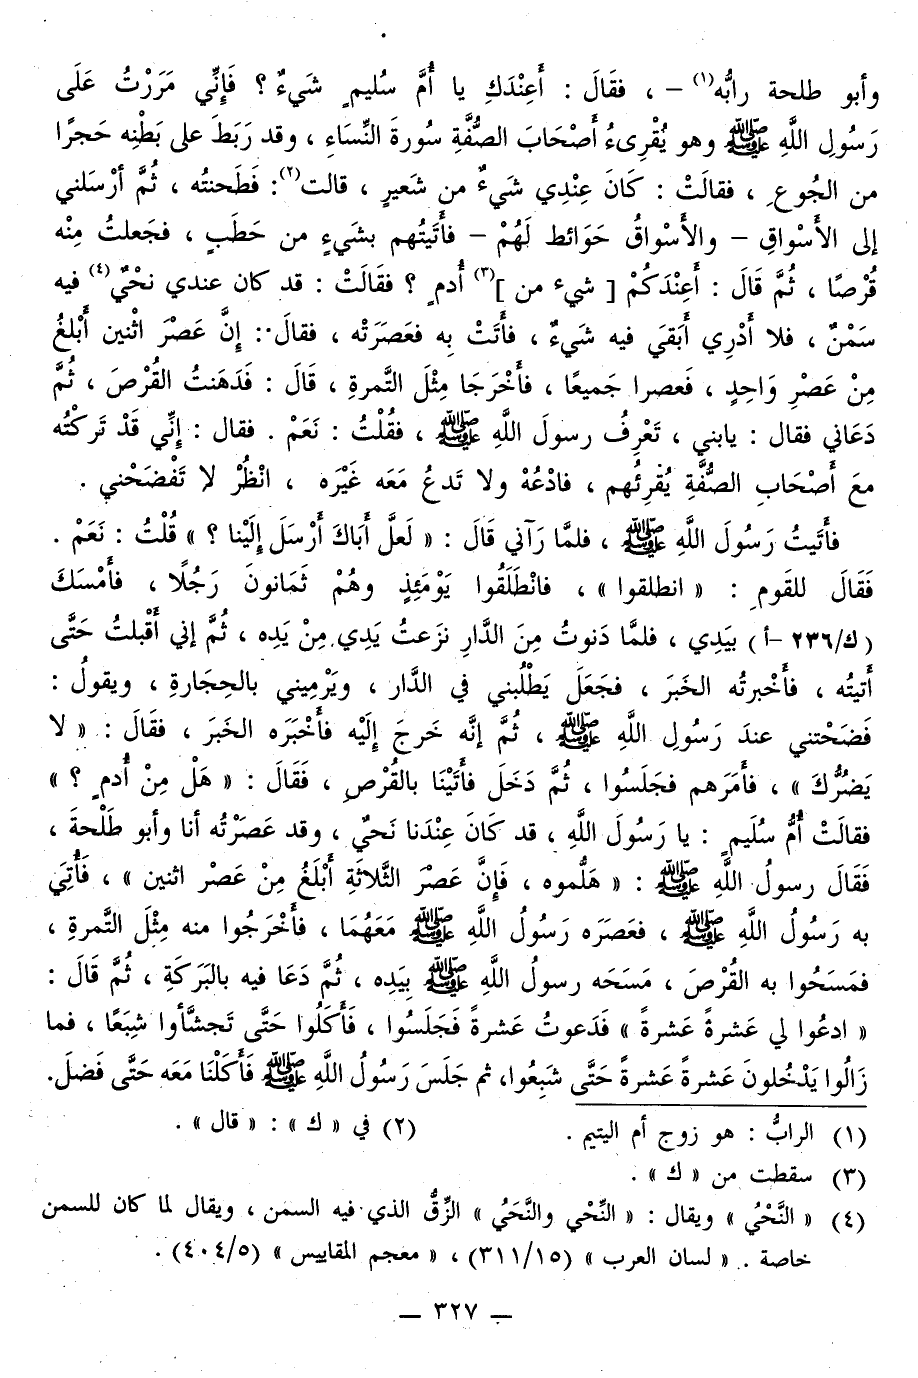 وأبو طلحة رابُّه(١) – ، فقَالَ : أَعِنْدَكِ يا أُمَّ سُليمٍ شَيءٌ ؟ فَإِنِّي مَرَرْتُ عَلَى
رَسُولِ اللَّهِ ﷺ وهو يُقْرِىءُ أَصْحَابَ الصُّفَّةِ سُورةَ النِّسَاءِ ، وقد رَبَطَ على بَطْنِه حَجرًا
من الجُوعِ ، فقالَتْ : كَانَ عِنْدِي شَيءٌ من شَعيرٍ ، قالت(٢): فَطَحنتُه ، ثُمَّ أرْسَلني
إلى الأَسْواقِ – والأَسْواقُ حَوَائط لَهُمْ – فأَتَيتُهم بشَيءٍ من حَطَبٍ ، فجَعلتُ مِنْه
قُرْصًا ، ثُمَّ قَالَ : أَعِنْدَكُمْ [ شيء من ](٣) أُدمٍ ؟ فقَالَتْ : قد كان عندي نحْيٌ(٤) فيه
سَمْنٌ ، فلا أَدْرِي أَبَقيَ فيه شَيءٌ ، فأَتَتْ بِه فعَصَرَتْه ، فقالَ : إنَّ عَصْرَ اثْنين أَبْلغُ
مِنْ عَصْرِ وَاحِدٍ ، فَعصرا جَميعًا ، فأَخْرَجَا مِثْلَ التَّمرةِ ، قَالَ : فَدَهَنتُ القُرْصَ ، ثُمَّ
دَعَاني فقال : يابني ، تَعْرِفُ رسولَ اللَّهِ ﷺ ، فقُلْتُ : نَعَمْ . فقال : إنِّي قَدْ تَركْتُه
معَ أَصْحَابِ الصُّفَّةِ يُقْرِئُهم ، فادْعُهْ ولا تَدعُ مَعَه غَيْرَه ، انْظُرْ لا تَفْضَحْني .
فأَتَيتُ رَسُولَ اللَّهِ ﷺ ، فلمَّا رَآني قَالَ : « لَعلَّ أَبَاكَ أَرْسَلَ إِلَيْنا ؟ » قُلْتُ : نَعَمْ .
فَقَالَ للقَومِ : « انطلقوا » ، فانْطَلَقُوا يَوْمَئِذٍ وهُمْ ثَمَانونَ رَجُلًا ، فأَمْسَكَ
( ك/٢٣٦ –أ ) بيَدِي ، فلمَّا دَنوتُ مِنَ الدَّارِ نزَعتُ يَدِي مِنْ يَدِه ، ثُمَّ إني أَقْبلتُ حَتَّى
أَتيتُه ، فأَخْبرتُه الخَبرَ ، فجَعَلَ يَطْلُبني في الدَّار ، ويَرْمِيني بالحِجَارةِ ، ويقولُ :
فَضَحْتني عندَ رَسُولِ اللَّهِ ﷺ ، ثُمَّ إنَّه خَرجَ إلَيْه فأَخْبَرَه الخَبرَ ، فقَالَ : « لا
يَضرُّكَ » ، فأَمَرَهم فجَلَسُوا ، ثُمَّ دَخَلَ فأَتَيْنَا بالقُرْصِ ، فَقَالَ : « هَلْ مِنْ أُدمٍ ؟ »
فقالَتْ أُمُّ سُلَيمٍ : يا رَسُولَ اللَّهِ ، قد كَانَ عِنْدَنا نَحيٌ ، وقد عَصَرْتُه أنا وأبو طَلْحةَ ،
فَقَالَ رسولُ اللَّهِ ﷺ : « هَلُّموه ، فَإِنَّ عَصْرَ الثَّلاثَةِ أَبْلَغُ مِنْ عَصْر اثنين » ، فَأُتِيَ
به رَسُولُ اللَّهِ ﷺ ، فعَصَرَه رَسُولُ اللَّهِ ﷺ مَعَهُمَا ، فأَخْرَجُوا منه مِثْلَ التَّمرةِ ،
فمَسَحُوا به القُرْصَ ، مَسَحَه رسولُ اللَّهِ ﷺ بِيَدِه ، ثُمَّ دَعَا فيه بالبَرَكَةِ ، ثُمَّ قَالَ :
« ادعُوا لي عَشرةً عَشرةً » فَدَعوتُ عَشرةً فَجَلَسُوا ، فَأَكَلُوا حَتَّى تَجشَّأوا شِبَعًا ، فما
زَالُوا يَدْخُلونَ عَشرةً عَشرةً حَتَّى شَبِعُوا، ثم جَلَسَ رَسُولُ اللَّهِ ﷺ فَأَكَلْنَا مَعَه حَتَّى فَضلَ.
(١) الرابُّ : هو زوج أم اليتيم . (٢) في « ك » : « قال » .
(٣) سقطت من « ك » .
(٤) « النَّحْيُ » ويقال : « النِّحْي والنَّحَيُ » الزِّقُّ الذي فيه السمن ، ويقال لما كان للسمن
خاصة . « لسان العرب » (٣١١/١٥) ، « معجم المقاييس » (٤٠٤/٥) .
— ٣٢٧ —